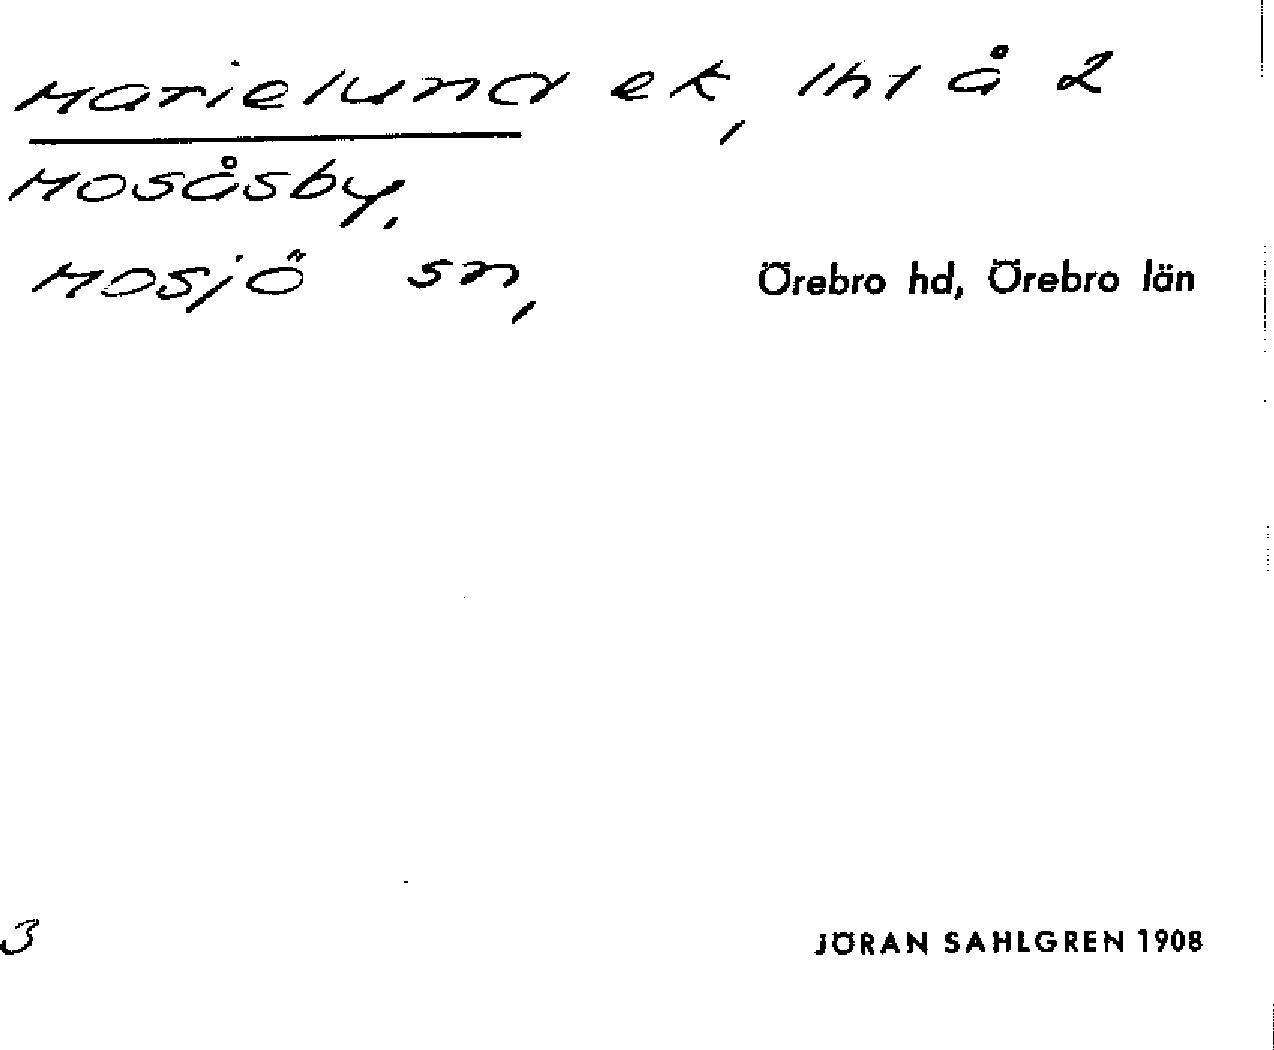 Marielund ek, lht å 2
Mosåsby,
Mosjö sn, Örebro hd, Örebro län
3
JÖRAN SAHLGREN 1908